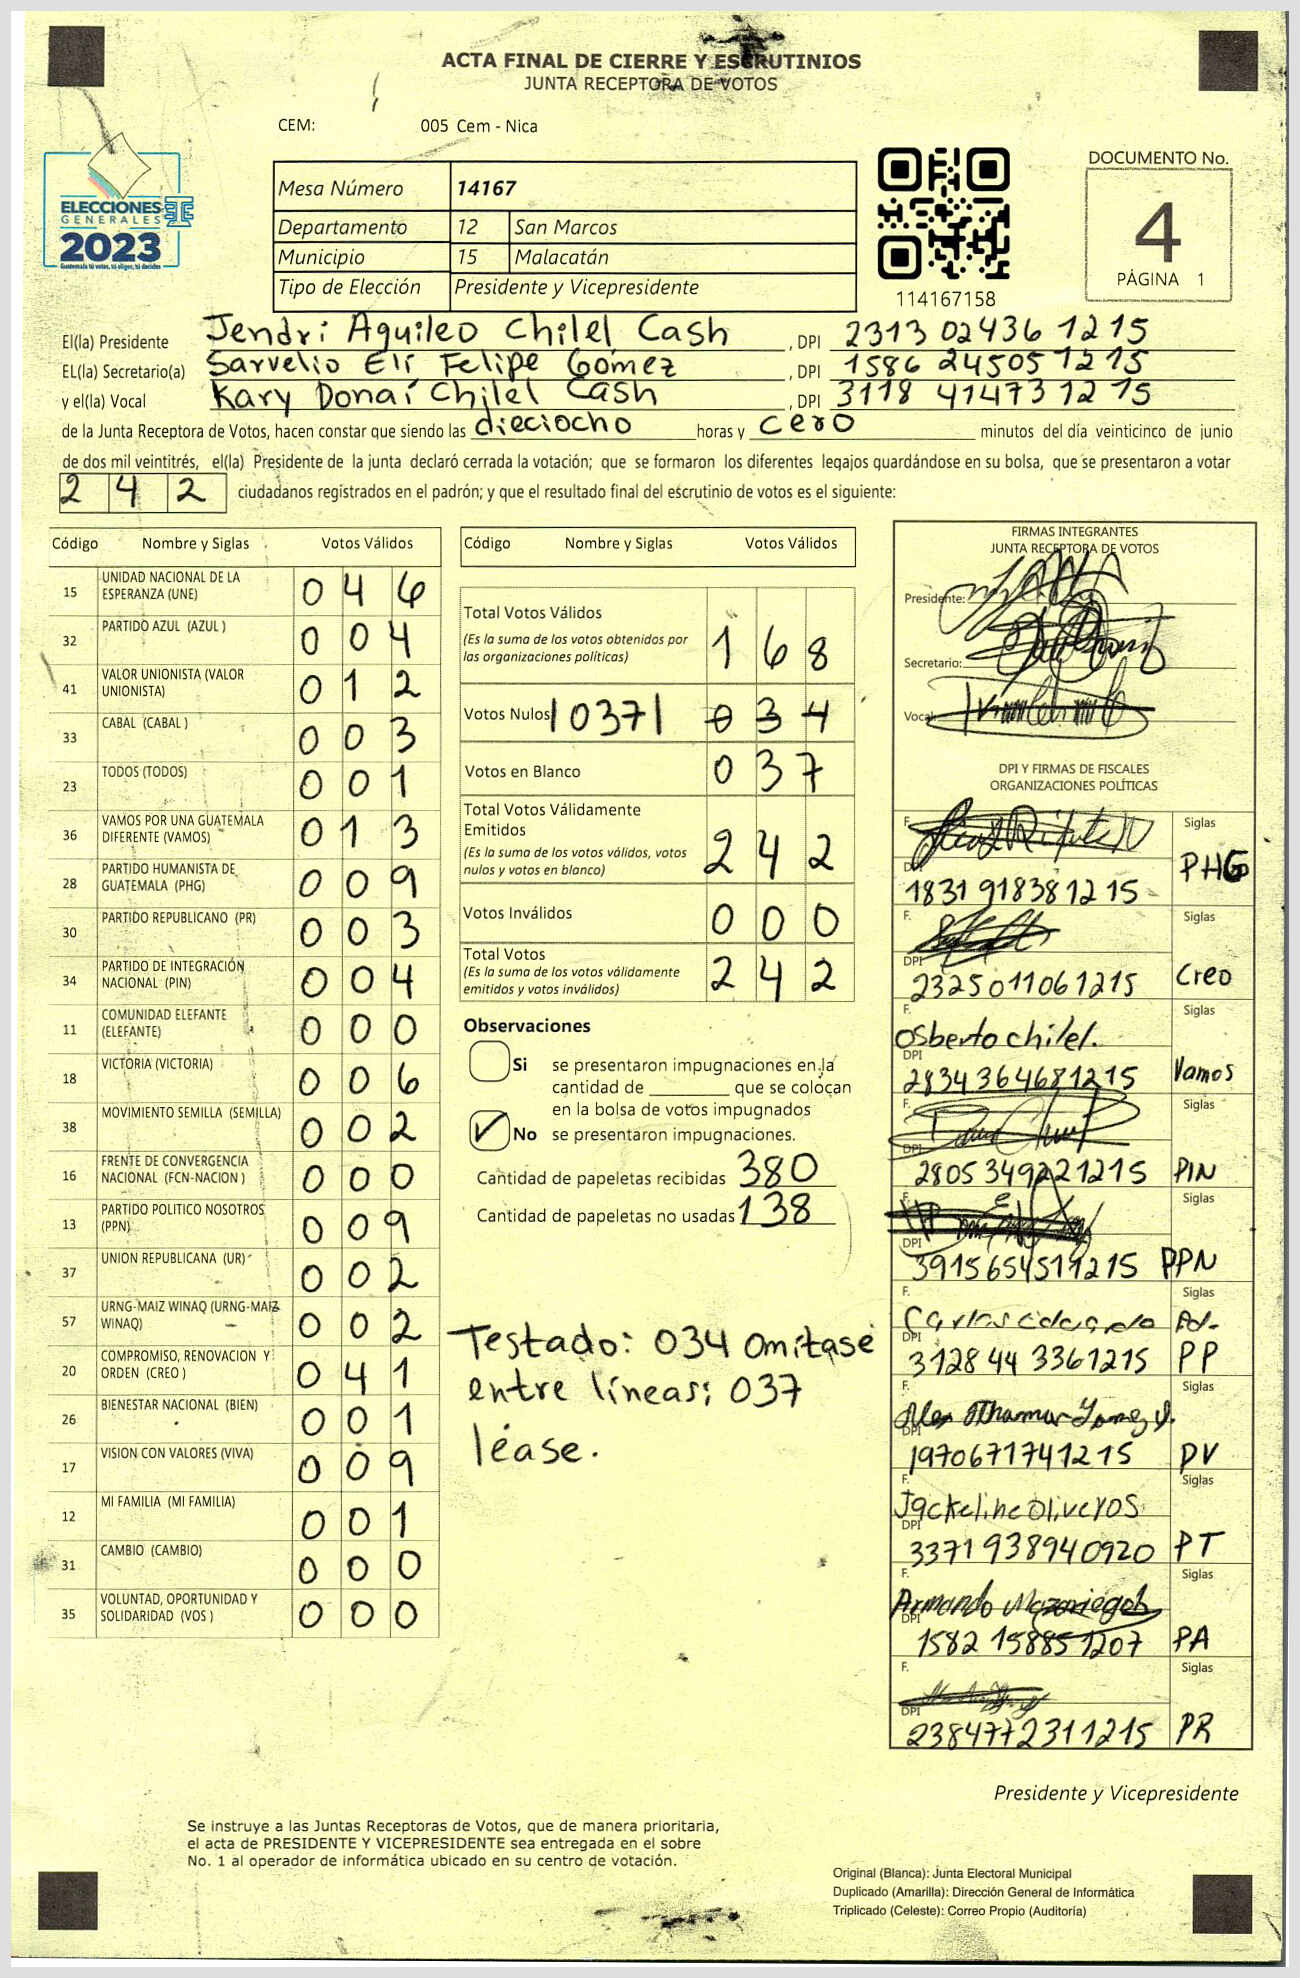 ACTA FINAL DE CIERRE Y ESCRUTINIOS
JUNTA RECEPTORA DE VOTOS
CEM: 005 Cem - Nica
ELECCIONES
GENERALES
2023
Guatemala tú votas, tú eliges, tú decides
Mesa Número 14167
Departamento 12 San Marcos
Municipio 15 Malacatán
Tipo de Elección Presidente y Vicepresidente
114167158
DOCUMENTO No.
4
PÁGINA 1
El(la) Presidente Jendri Aquileo Chilel Cash , DPI 2313 02436 1215
EL(la) Secretario(a) Sarvelio Elí Felipe Gómez , DPI 1586 24505 1215
y el(la) Vocal Kary Donaí Chilel Cash , DPI 3118 41473 1215
de la Junta Receptora de Votos, hacen constar que siendo las dieciocho horas y cero minutos del día veinticinco de junio
de dos mil veintitrés, el(la) Presidente de la junta declaró cerrada la votación; que se formaron los diferentes legajos guardándose en su bolsa, que se presentaron a votar
242 ciudadanos registrados en el padrón; y que el resultado final del escrutinio de votos es el siguiente:
Código Nombre y Siglas Votos Válidos
15 UNIDAD NACIONAL DE LA ESPERANZA (UNE) 046
32 PARTIDO AZUL (AZUL ) 004
41 VALOR UNIONISTA (VALOR UNIONISTA) 012
33 CABAL (CABAL ) 003
23 TODOS (TODOS) 001
36 VAMOS POR UNA GUATEMALA DIFERENTE (VAMOS) 013
28 PARTIDO HUMANISTA DE GUATEMALA (PHG) 009
30 PARTIDO REPUBLICANO (PR) 003
34 PARTIDO DE INTEGRACIÓN NACIONAL (PIN) 004
11 COMUNIDAD ELEFANTE (ELEFANTE) 000
18 VICTORIA (VICTORIA) 006
38 MOVIMIENTO SEMILLA (SEMILLA) 002
16 FRENTE DE CONVERGENCIA NACIONAL (FCN-NACION ) 000
13 PARTIDO POLITICO NOSOTROS (PPN) 009
37 UNION REPUBLICANA (UR) 002
57 URNG-MAIZ WINAQ (URNG-MAIZ WINAQ) 002
20 COMPROMISO, RENOVACION Y ORDEN (CREO ) 041
26 BIENESTAR NACIONAL (BIEN) 001
17 VISION CON VALORES (VIVA) 009
12 MI FAMILIA (MI FAMILIA) 001
31 CAMBIO (CAMBIO) 000
35 VOLUNTAD, OPORTUNIDAD Y SOLIDARIDAD (VOS ) 000
Código Nombre y Siglas Votos Válidos
Total Votos Válidos
(Es la suma de los votos obtenidos por
las organizaciones políticas) 168
Votos Nulos |037| 034
Votos en Blanco 037
Total Votos Válidamente
Emitidos
(Es la suma de los votos válidos, votos
nulos y votos en blanco) 242
Votos Inválidos 000
Total Votos
(Es la suma de los votos válidamente
emitidos y votos inválidos) 242
Observaciones
Si se presentaron impugnaciones en la
cantidad de ________ que se colocan
en la bolsa de votos impugnados
No se presentaron impugnaciones.
Cantidad de papeletas recibidas 380
Cantidad de papeletas no usadas 138
Testado: 034 omítase
entre líneas; 037
léase.
FIRMAS INTEGRANTES
JUNTA RECEPTORA DE VOTOS
Presidente:
Secretario:
Vocal:
DPI Y FIRMAS DE FISCALES
ORGANIZACIONES POLÍTICAS
F. Siglas
DPI 1831 91838 1215 PHG
F. Siglas
DPI 2325 01106 1215 Creo
F. Osberto chilel. Siglas
DPI 2834 36468 1215 Vamos
F. Siglas
DPI 2805 34922 1215 PIN
F. Siglas
DPI 3915654511215 PPN
F. Carlos Siglas
DPI 3128 44 3361215 PP
F. Siglas
DPI 1970671741215 PV
F. Jackeline Oliveros Siglas
DPI 3371 93894 0920 PT
F. Armando Mazariegos Siglas
DPI 1582 15885 1207 PA
F. Siglas
DPI 2384772311215 PR
Presidente y Vicepresidente
Se instruye a las Juntas Receptoras de Votos, que de manera prioritaria,
el acta de PRESIDENTE Y VICEPRESIDENTE sea entregada en el sobre
No. 1 al operador de informática ubicado en su centro de votación.
Original (Blanca): Junta Electoral Municipal
Duplicado (Amarilla): Dirección General de Informática
Triplicado (Celeste): Correo Propio (Auditoría)